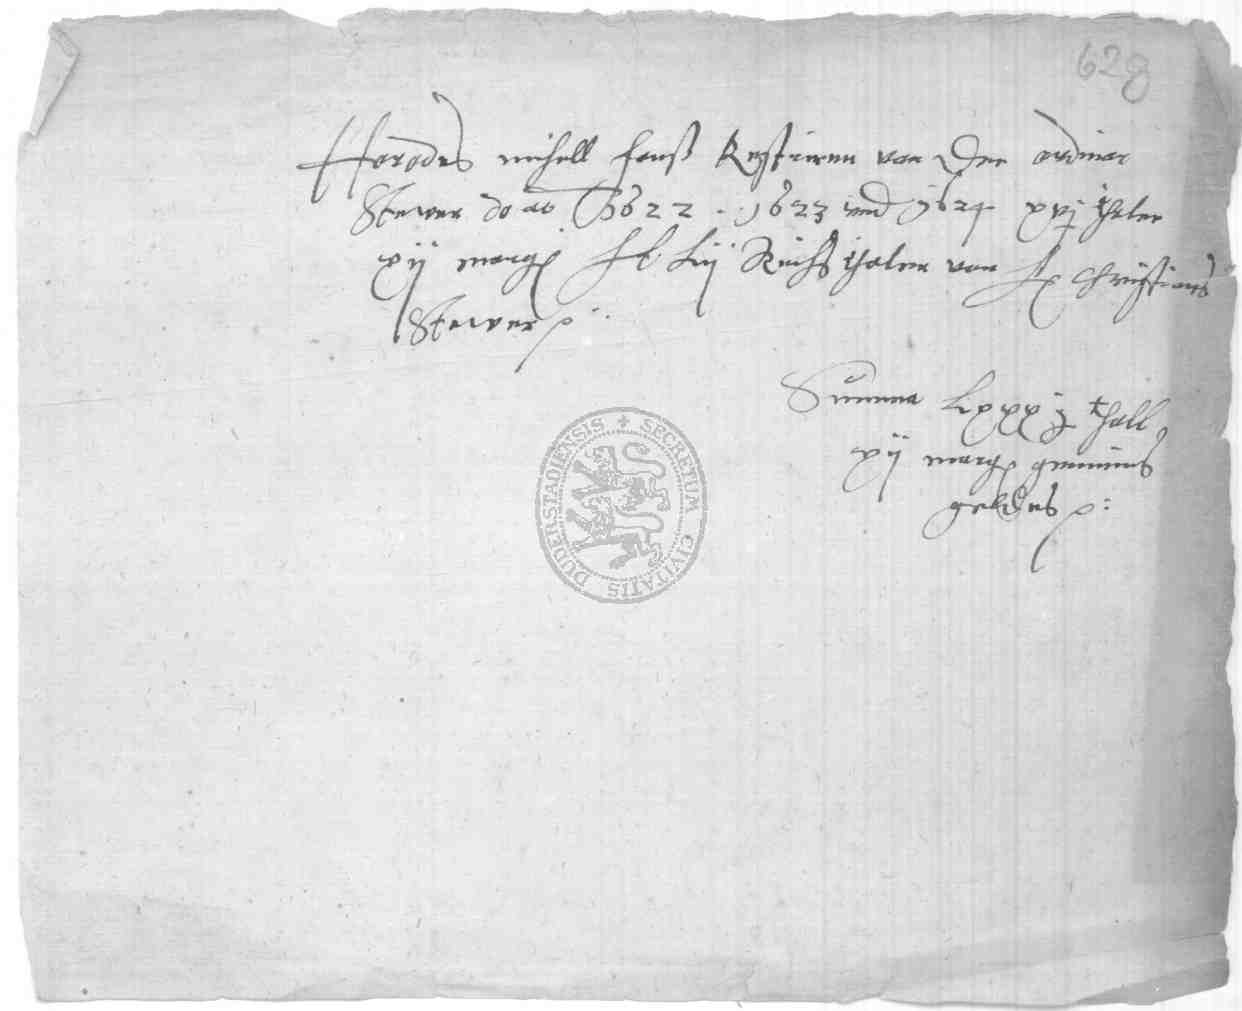 628
Herodes michell hauß Restiren von Der ordinar
Stewer do ao 1622 . . 1623 und 1624 xvj thaler
xij marg
Reichs thaler von Christians
Stewer
Summa thall
xij marg gemeines
geldes
SECRETUM CIVITATIS DUDERSTADIENSIS